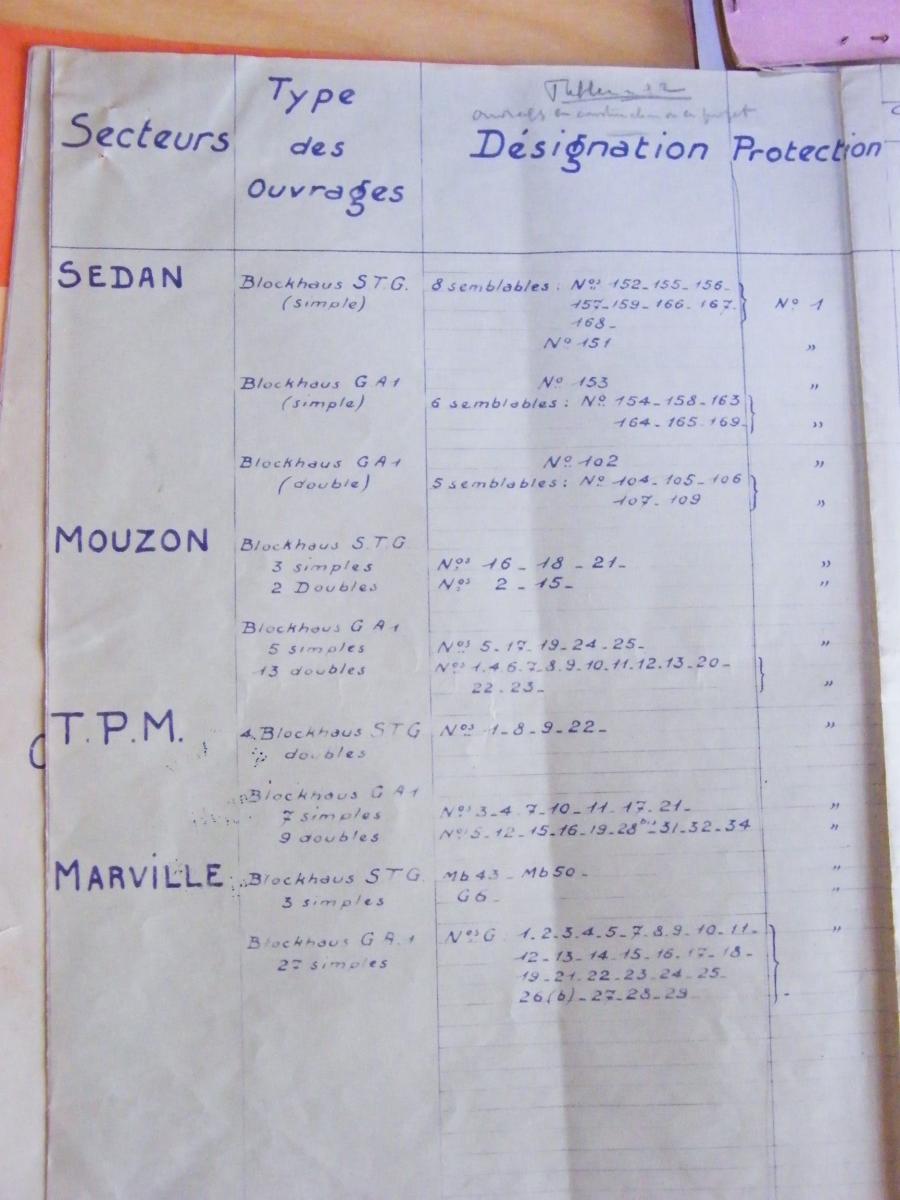 Secteurs
Type
des
Ouvrages
ouvrages en construction ou en projet
Désignation
Protection
SEDAN
Blockhaus S.T.G.
(simple)
8 semblables : Nos 152_155_156_
157_159_166_167_
168_
No 1
No 151
"
Blockhaus G A 1
(simple)
No 153
"
6 semblables : No 154_158_163
164_165_169_
"
Blockhaus G A 1
(double)
No 102
"
5 semblables : No 104_105_106
107_109
"
MOUZON
Blockhaus S.T.G.
3 simples
Nos 16_18_21_
"
2 Doubles
Nos 2_15_
"
Blockhaus G A 1
5 simples
Nos 5.17.19.24.25_
"
13 doubles
Nos 1.4.6.7.8.9.10.11.12.13_20_
22.23_
"
T.P.M.
4 Blockhaus S T G
doubles
Nos 1_8_9_22_
"
Blockhaus G A 1
7 simples
Nos 3_4_7_10_11_17_21_
"
9 doubles
Nos 5_12_15_16_19_28bis_31_32_34
"
MARVILLE
Blockhaus S T G.
3 simples
Mb 43_Mb 50_
"
G 6_
"
Blockhaus G A.1
27 simples
Nos G. 1.2.3.4.5_7.8.9_10_11_
12_13_14_15_16_17_18_
19_21_22_23_24_25_
26(b)_27_28_29_
"